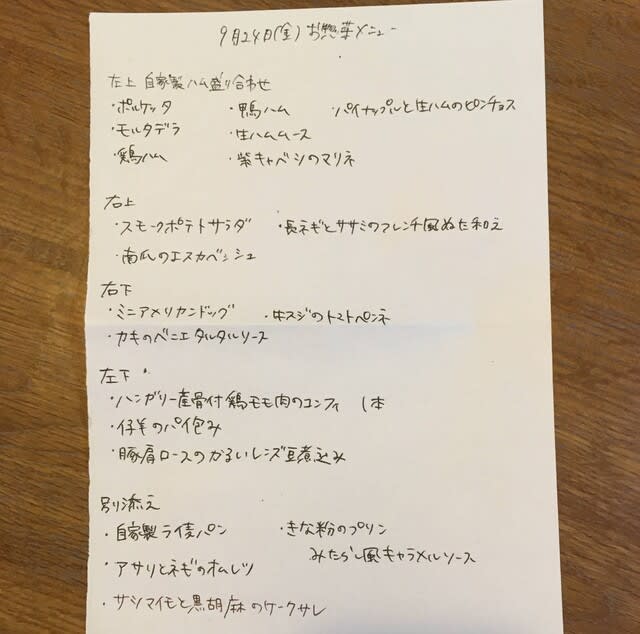 9月24日(金) お惣菜メニュー
左上 自家製ハム盛り合わせ
・ポルケッタ ・鴨ハム ・パイナップルと生ハムのピンチョス
・モルタデラ ・生ハムムース
・鶏ハム ・紫キャベツのマリネ
右上
・スモークポテトサラダ ・長ネギとササミのフレンチ風ぬた和え
・南瓜のエスカベッシュ
右下
・ミニアメリカンドッグ ・牛スジのトマトペンネ
・カキのベニエタルタルソース
左下
・ハンガリー産骨付鶏モモ肉のコンフィ 1本
・仔羊のパイ包み
・豚肩ロースのかるいレンズ豆煮込み
別添え
・自家製ライ麦パン ・きな粉のプリン
みたらし風キャラメルソース
・アサリとネギのオムレツ
・サツマイモと黒胡麻のケークサレ